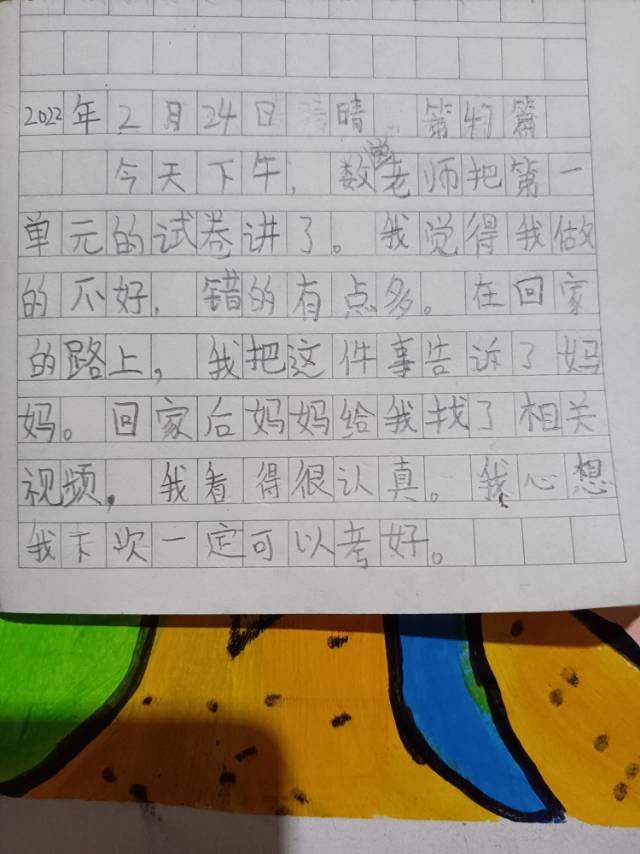 2022年2月24日 晴 第 篇
今天下午，数学老师把第一
单元的试卷讲了。我觉得我做
的不好，错的有点多。在回家
的路上，我把这件事告诉了妈
妈。回家后妈妈给我找了相关
视频，我看得很认真。我心想
我下次一定可以考好。